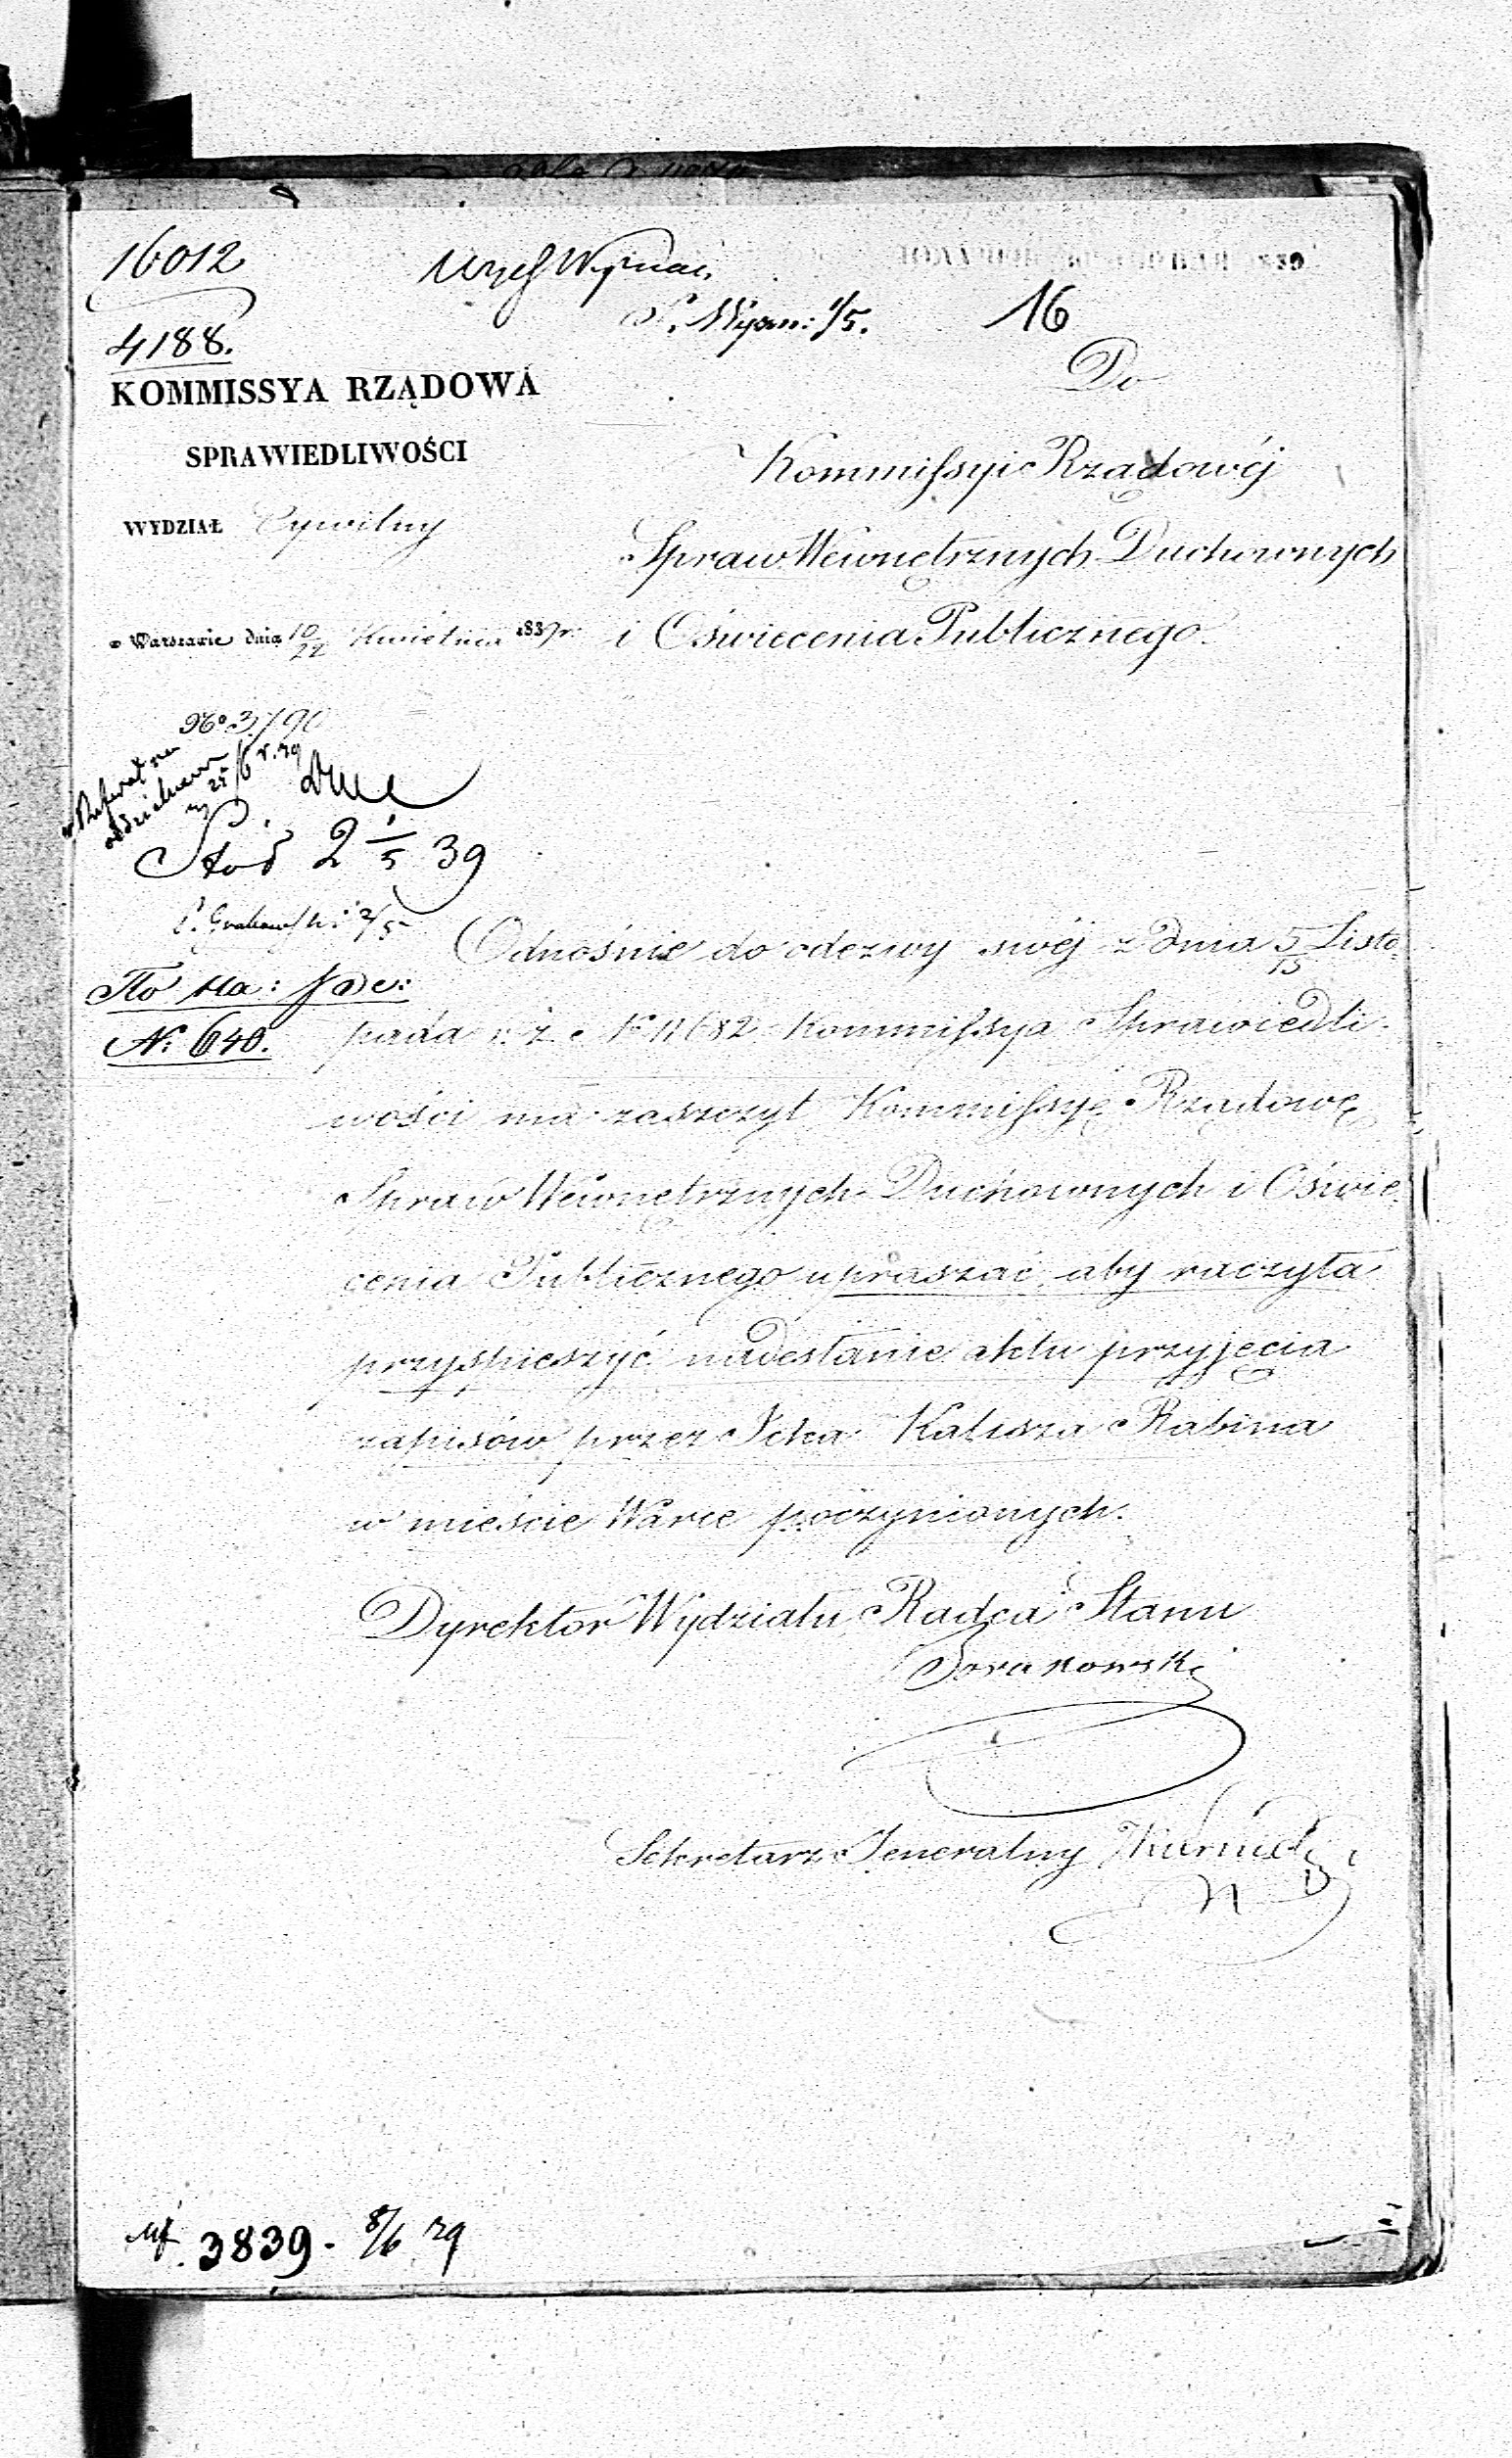 16012
4188.
16
KOMMISSYA RZĄDOWA
SPRAWIEDLIWOŚCI
WYDZIAŁ Cywilny
w Warszawie dnia 10/22 Kwietnia 1839 r.
Do
Kommissyi Rządowéj
Spraw Wewnętrznych Duchownych
i Oświecenia Publicznego.
No 3790
2 1/5 39
N: 640.
Odnośnie do odezwy swéj z dnia 5/15 Listo
pada r. z. No 11682 Kommissya Sprawiedli
wości ma zaszczyt Kommissyę Rządową
Spraw Wewnętrznych Duchownych i Oświe
cenia Publicznego upraszać, aby raczyła
przyspieszyć nadesłanie aktu przyjęcia
zapisów przez Icka Kalisza Rabina
w mieście Warce poczynionych.
Dyrektor Wydziału, Radca Stanu
Sekretarz Jeneralny
3839. 8/6 39